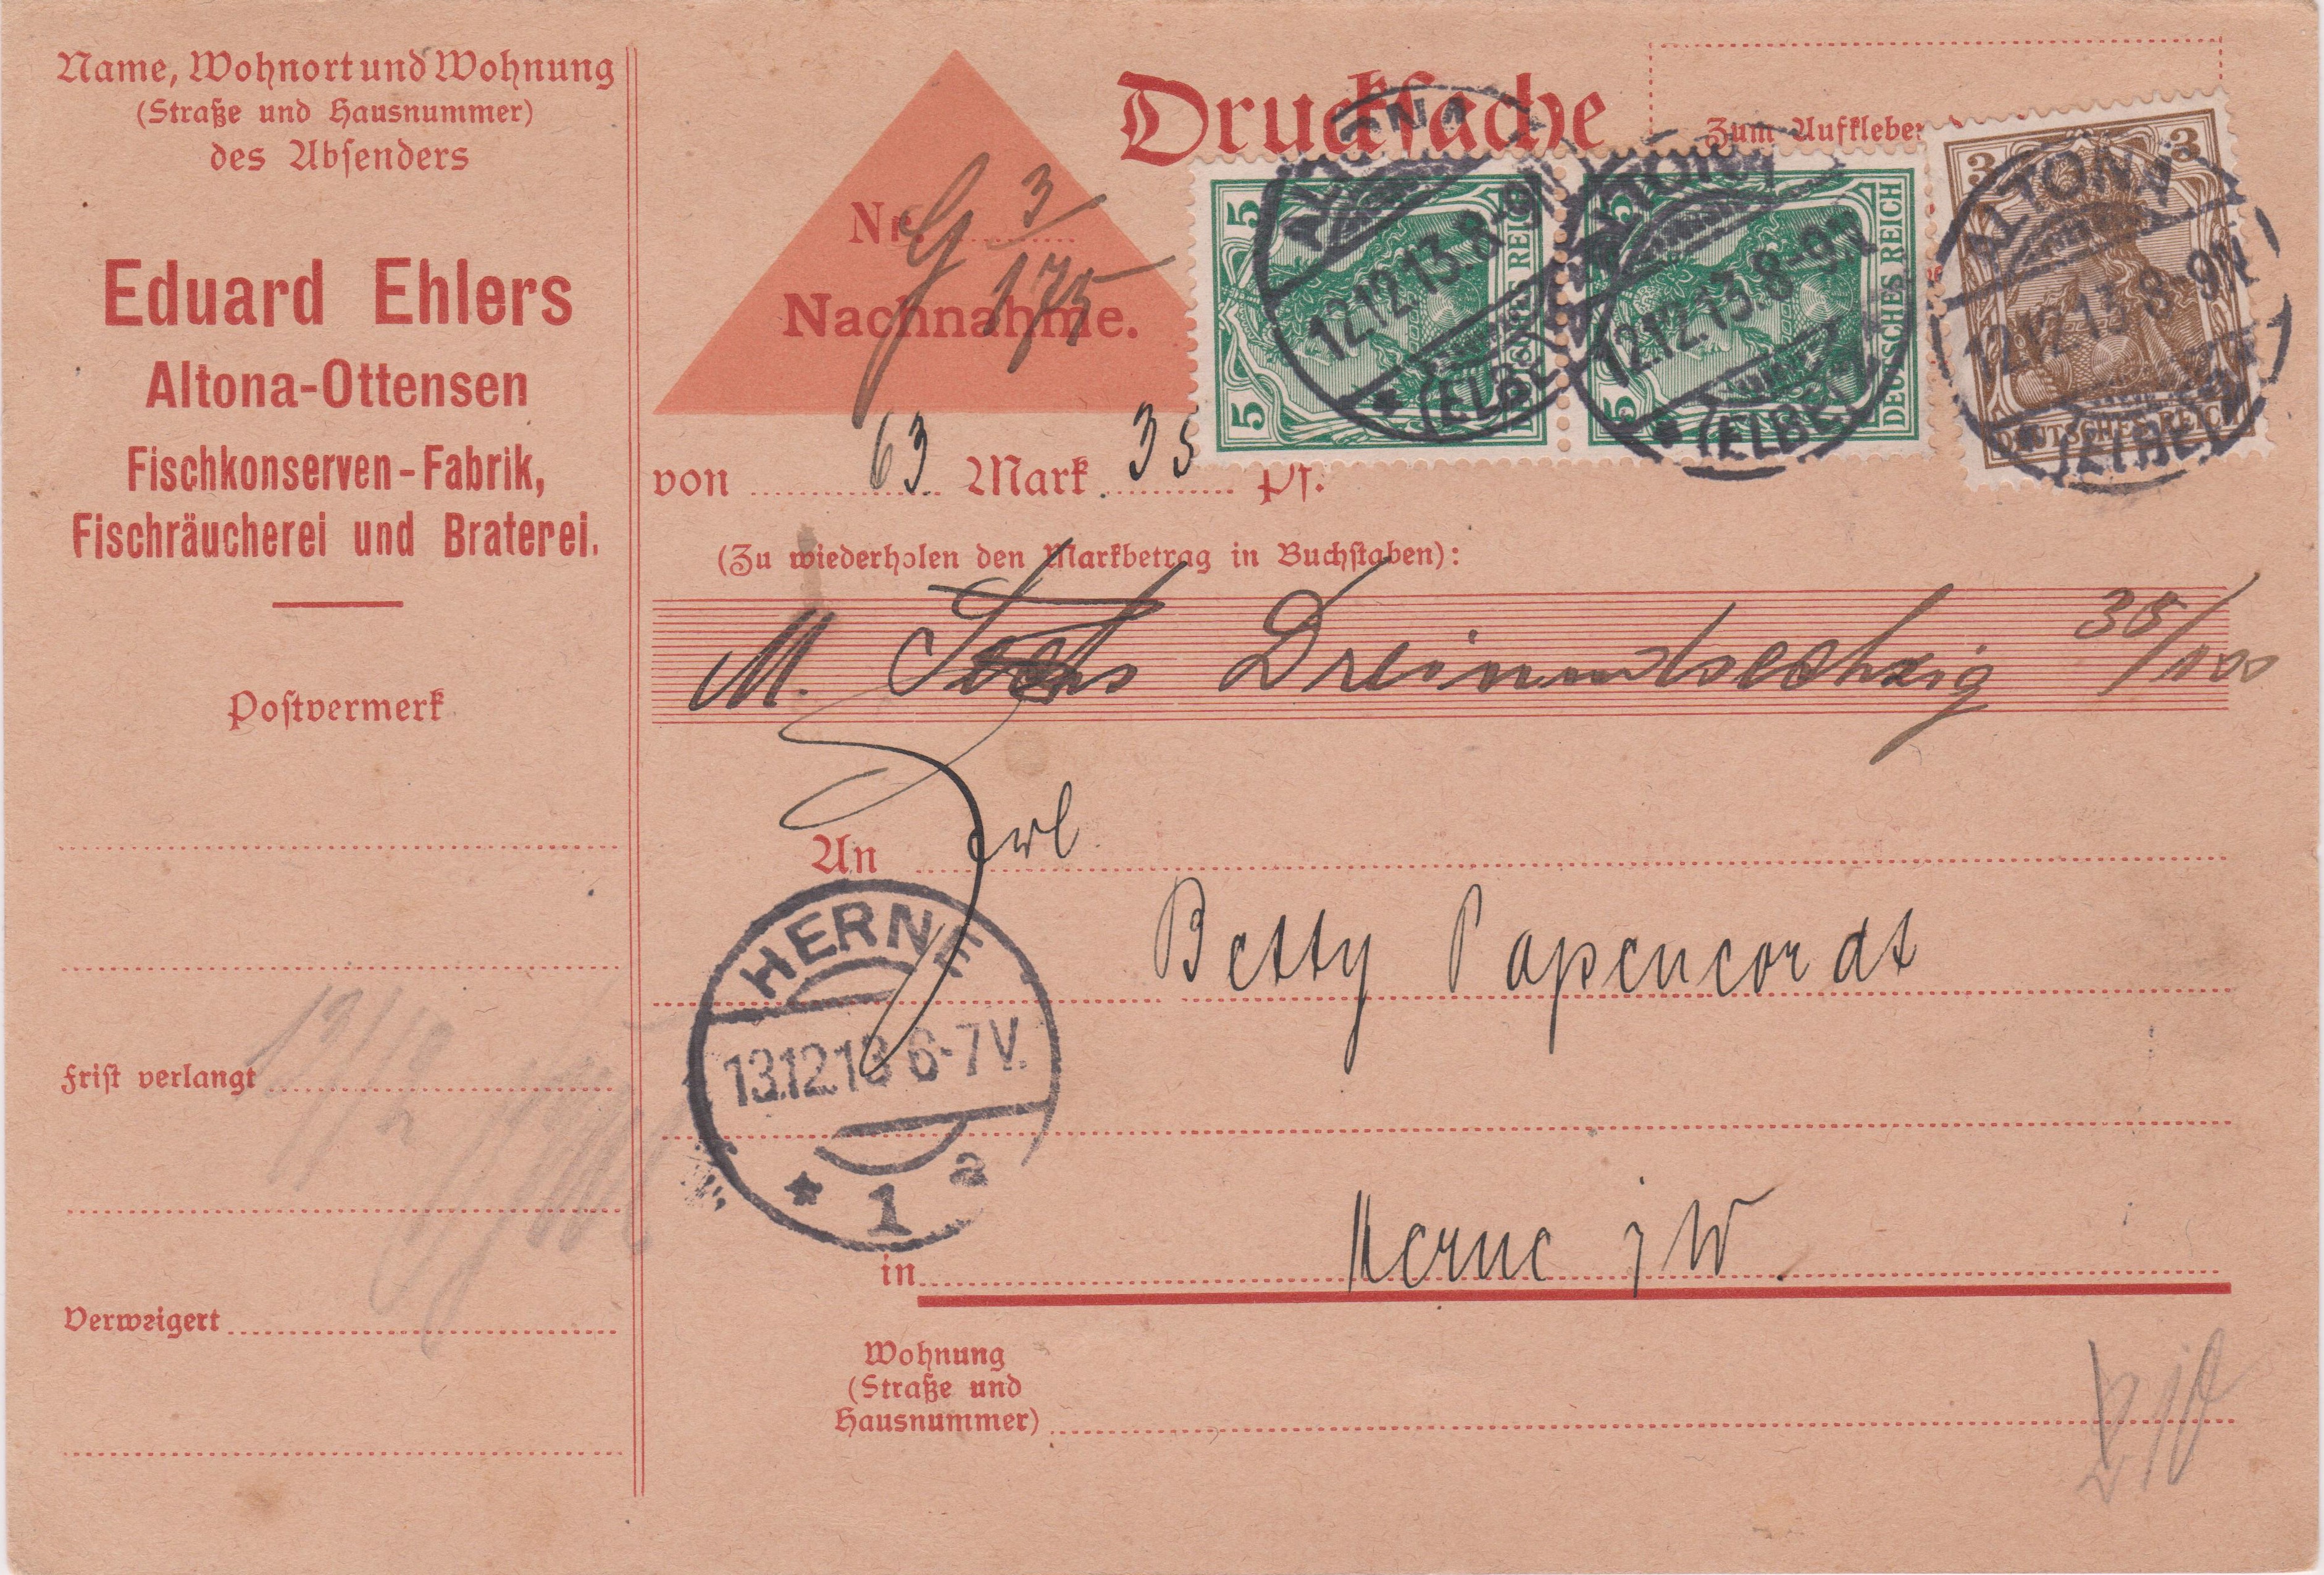 Name, Wohnort und Wohnung
(Straße und Hausnummer)
des Absenders
Eduard Ehlers
Altona-Ottensen
Fischkonserven-Fabrik,
Fischräucherei und Braterei.
Postvermerk
Frist verlangt
Verweigert
Drucksache
Zum Aufkleben
Nr. G 3/175
Nachnahme.
5 5 DEUTSCHES REICH
5 5 DEUTSCHES REICH
3 3 DEUTSCHES REICH
ALTONA 12.12.13. 8-9N * (ELBE)
ALTONA 12.12.13. 8-9N * (ELBE)
ALTONA 12.12.13. 8-9N * (ELBE)
von 63 Mark 35 Pf.
(Zu wiederholen den Markbetrag in Buchstaben):
M. Dreiundsechzig 35/100
An Frl
Betty Papencordt
HERNE
13.12.13 6-7V.
* 1 a
in Herne i W.
Wohnung
(Straße und
Hausnummer)